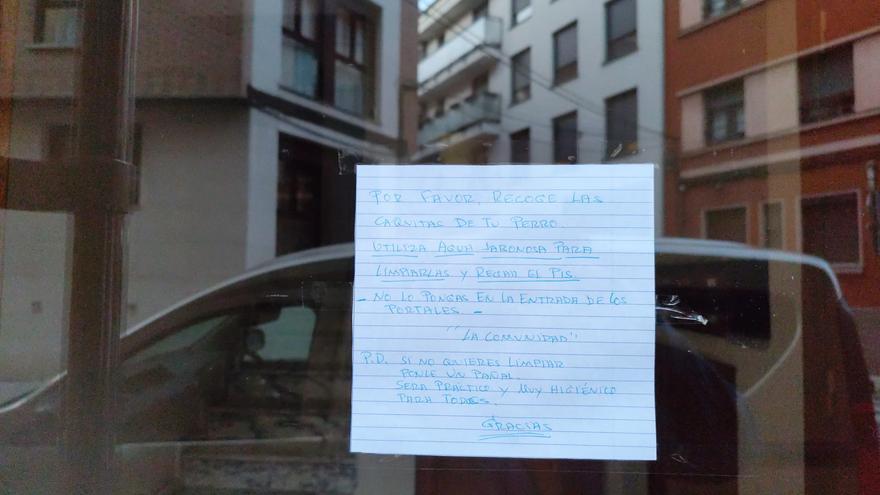 POR FAVOR, RECOGE LAS
CAQUITAS DE TU PERRO.
UTILIZA AGUA JABONOSA PARA
LIMPIARLAS Y REGAR EL PIS.
- NO LO PONGAS EN LA ENTRADA DE LOS
PORTALES. -
"LA COMUNIDAD"
P.D. SI NO QUIERES LIMPIAR
PONLE UN PAÑAL.
SERA PRÁCTICO Y MUY HIGIÉNICO
PARA TODOS.
GRACIAS